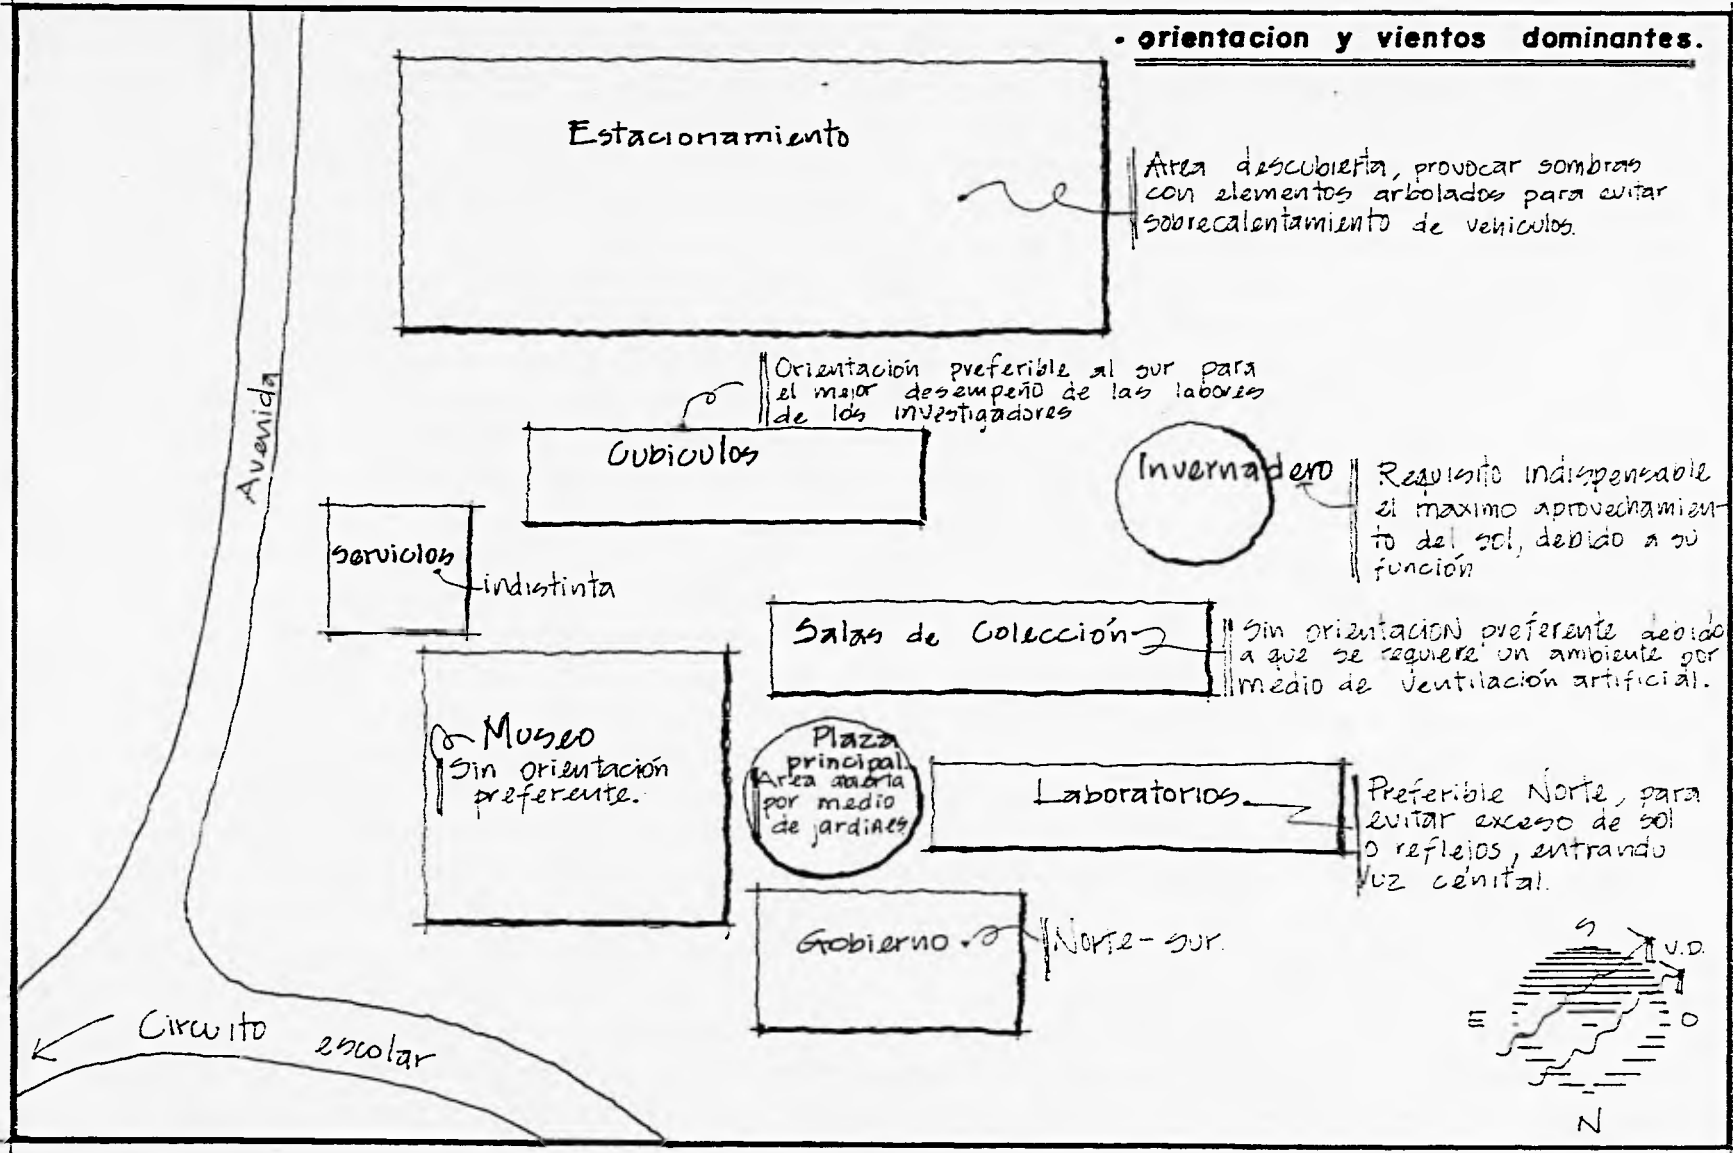 • orientacion y vientos dominantes.
Estacionamiento
Area descubierta, provocar sombras
con elementos arbolados para evitar
sobrecalentamiento de vehiculos.
Orientación preferible al sur para
el mejor desempeño de las labores
de los investigadores
Cubiculos
Avenida
Invernadero
Requisito indispensable
el maximo aprovechamien-
to del sol, debido a su
función
servicios
indistinta
Salas de Colección
Sin orientacion preferente debido
a que se requiere un ambiente por
medio de ventilación artificial.
Museo
Sin orientación
preferente.
Plaza
principal.
Area abierta
por medio
de jardines
Laboratorios.
Preferible Norte, para
evitar exceso de sol
o reflejos, entrando
luz cenital.
Gobierno.
Norte-sur.
Circuito
escolar
S
V.D.
E
O
N